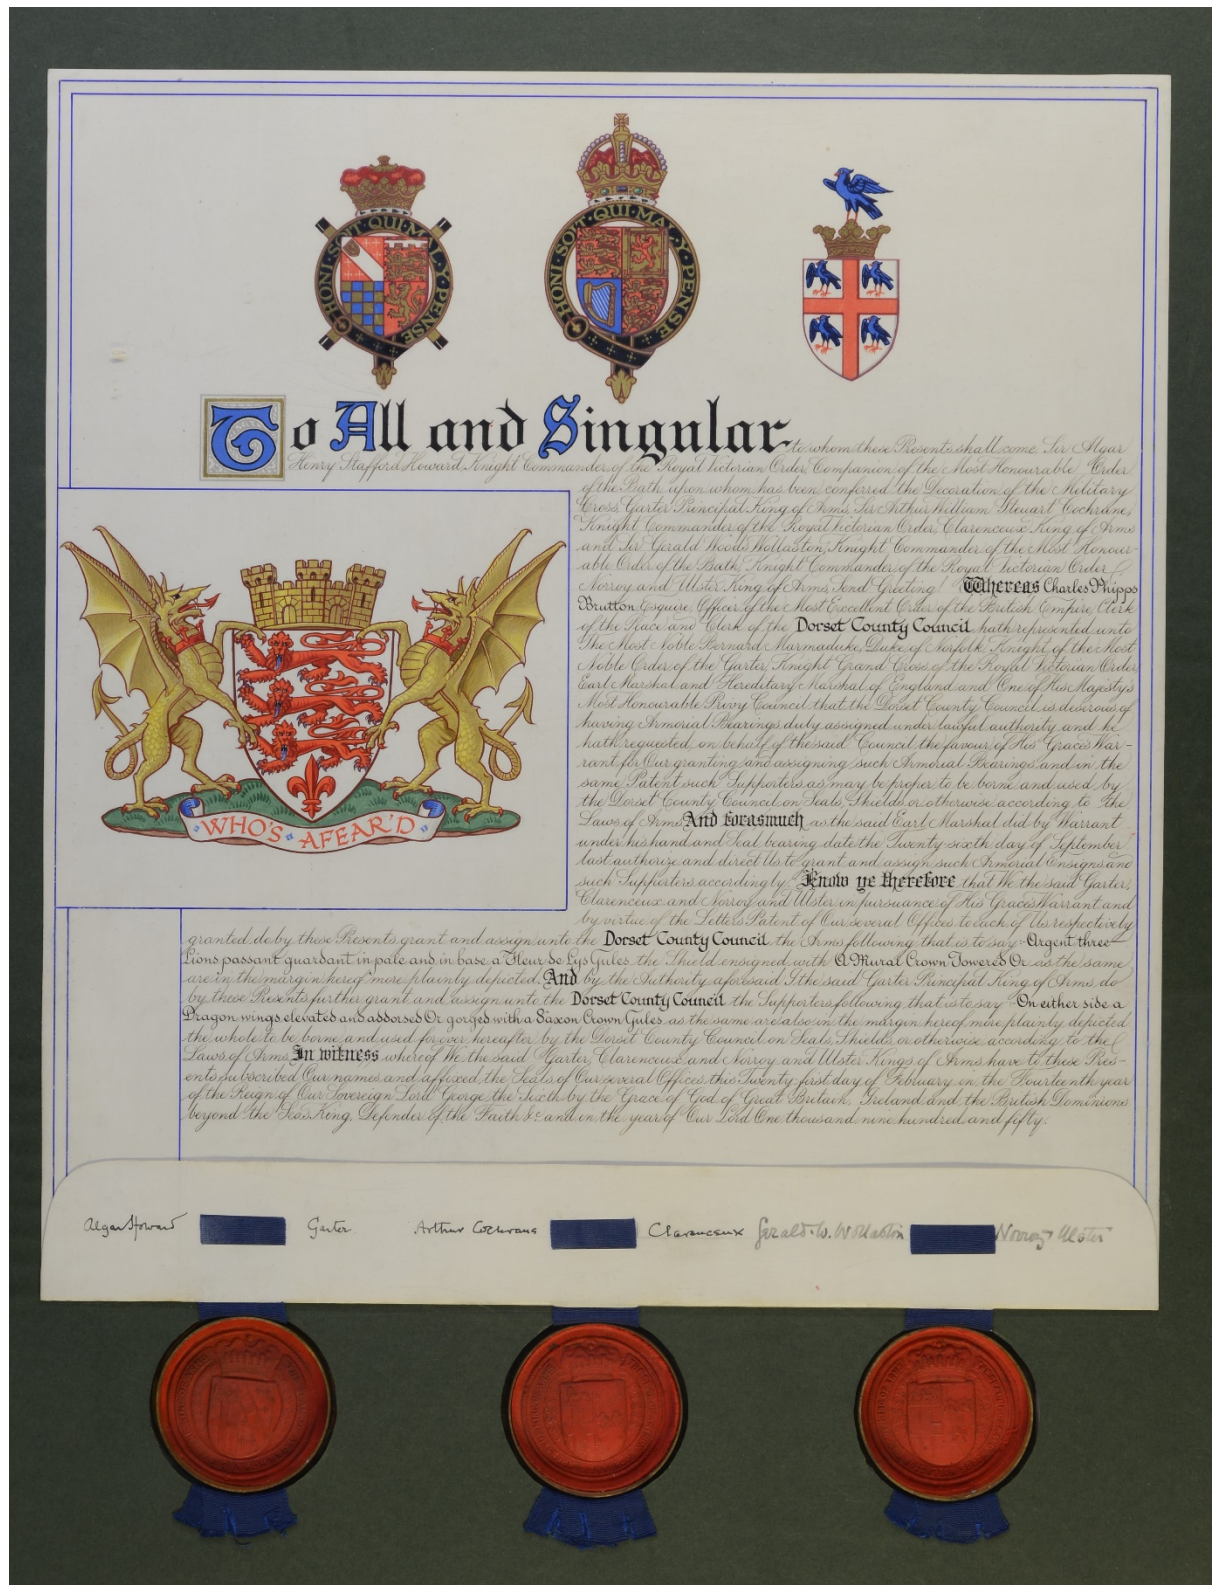 HONI·SOIT·QUI·MAL·Y·PENSE
HONI·SOIT·QUI·MAL·Y·PENSE
To All and Singular to whom these Presents shall come Sir Algar
Henry Stafford Howard, Knight Commander of the Royal Victorian Order, Companion of the Most Honourable Order
of the Bath, upon whom has been conferred the Decoration of the Military
Cross, Garter Principal King of Arms, Sir Arthur William Steuart Cochrane,
Knight Commander of the Royal Victorian Order, Clarenceux King of Arms
and Sir Gerald Woods Wollaston, Knight Commander of the Most Honour-
able Order of the Bath, Knight Commander of the Royal Victorian Order,
Norroy and Ulster King of Arms, Send Greeting! Whereas Charles Phipps
Brutton Esquire, Officer of the Most Excellent Order of the British Empire, Clerk
of the Peace and Clerk of the Dorset County Council hath represented unto
The Most Noble Bernard Marmaduke, Duke of Norfolk, Knight of the Most
Noble Order of the Garter, Knight Grand Cross of the Royal Victorian Order,
Earl Marshal and Hereditary Marshal of England and One of His Majesty's
Most Honourable Privy Council that the Dorset County Council is desirous of
having Armorial Bearings duly assigned under lawful authority and he
hath requested on behalf of the said Council the favour of His Grace's War-
rant for Our granting and assigning such Armorial Bearings and in the
same Patent such Supporters as may be proper to be borne and used by
the Dorset County Council on Seals, Shields, or otherwise according to the
Laws of Arms And forasmuch as the said Earl Marshal did by Warrant
under his hand and Seal bearing date the Twenty sixth day of September
last authorize and direct Us to grant and assign such Armorial Ensigns and
such Supporters accordingly Know ye therefore that We the said Garter,
Clarenceux and Norroy and Ulster in pursuance of His Grace's Warrant and
by virtue of the Letters Patent of Our several Offices to each of Us respectively
granted do by these Presents grant and assign unto the Dorset County Council the Arms following that is to say:- Argent three
Lions passant guardant in pale and in base a Fleur de Lys Gules the Shield ensigned with A Mural Crown Towered Or as the same
are in the margin hereof more plainly depicted. And by the Authority aforesaid I the said Garter Principal King of Arms do
by these Presents further grant and assign unto the Dorset County Council the Supporters following that is to say On either side a
Dragon wings elevated and addorsed Or gorged with a Saxon Crown Gules as the same are also in the margin hereof more plainly depicted
the whole to be borne and used for ever hereafter by the Dorset County Council on Seals, Shields, or otherwise according to the
Laws of Arms In witness whereof We the said Garter, Clarenceux and Norroy and Ulster Kings of Arms have to these Pres-
ents subscribed Our names and affixed the Seals of Our several Offices this Twenty first day of February in the Fourteenth year
of the Reign of Our Sovereign Lord George the Sixth by the Grace of God of Great Britain, Ireland and the British Dominions
beyond the Seas King, Defender of the Faith &c and in the year of Our Lord One thousand nine hundred and fifty.
WHO'S AFEAR'D
Algar Howard Garter Arthur Cochrane Clarenceux Gerald W. Wollaston Norroy Ulster